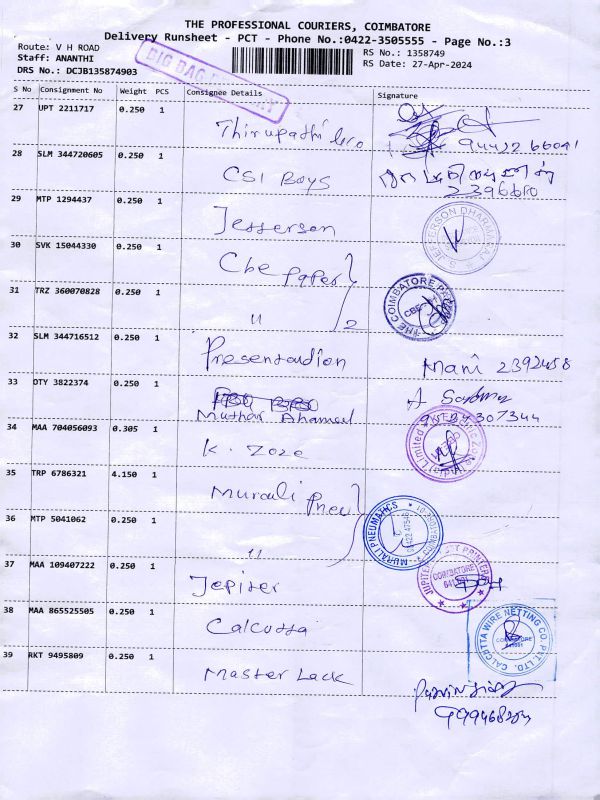 THE PROFESSIONAL COURIERS, COIMBATORE
Delivery Runsheet - PCT - Phone No.:0422-3505555 - Page No.:3
Route: V H ROAD
RS No.: 1358749
Staff: ANANTHI
RS Date: 27-Apr-2024
DRS No.: DCJB135874903
BIG BAG
S No Consignment No Weight PCS Consignee Details Signature
27 UPT 2211717 0.250 1 Thirupathi bro
28 SLM 344720605 0.250 1 CSI Boys
2396610
29 MTP 1294437 0.250 1 Jesserson
30 SVK 15044330 0.250 1 Cbe paper
31 TRZ 360070828 0.250 1 " /2
THE COIMBATORE
32 SLM 344716512 0.250 1 Presentardion Mani 2392458
33 OTY 3822374 0.250 1 Muthar Ahamed
307344
34 MAA 704056093 0.305 1 K. Zoze
35 TRP 6786321 4.150 1 Murali Pneu
36 MTP 5041062 0.250 1 "
MURALI PNEUMATICS
37 MAA 109407222 0.250 1 Jepiter
JUPITER PRINTERS
COIMBATORE
38 MAA 865525505 0.250 1 Calcussa
CALCUTTA WIRE NETTING CO. PVT. LTD.
COIMBATORE
39 RKT 9495809 0.250 1 Master Lack